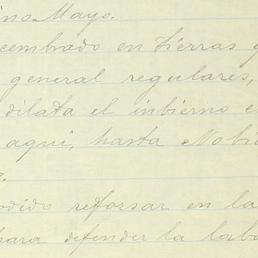 Mayo.
cembrado en tierras
general regulares,
dilata el inbierno e
aqui, hasta Nobi
odido reforsar en la
para defender la labo